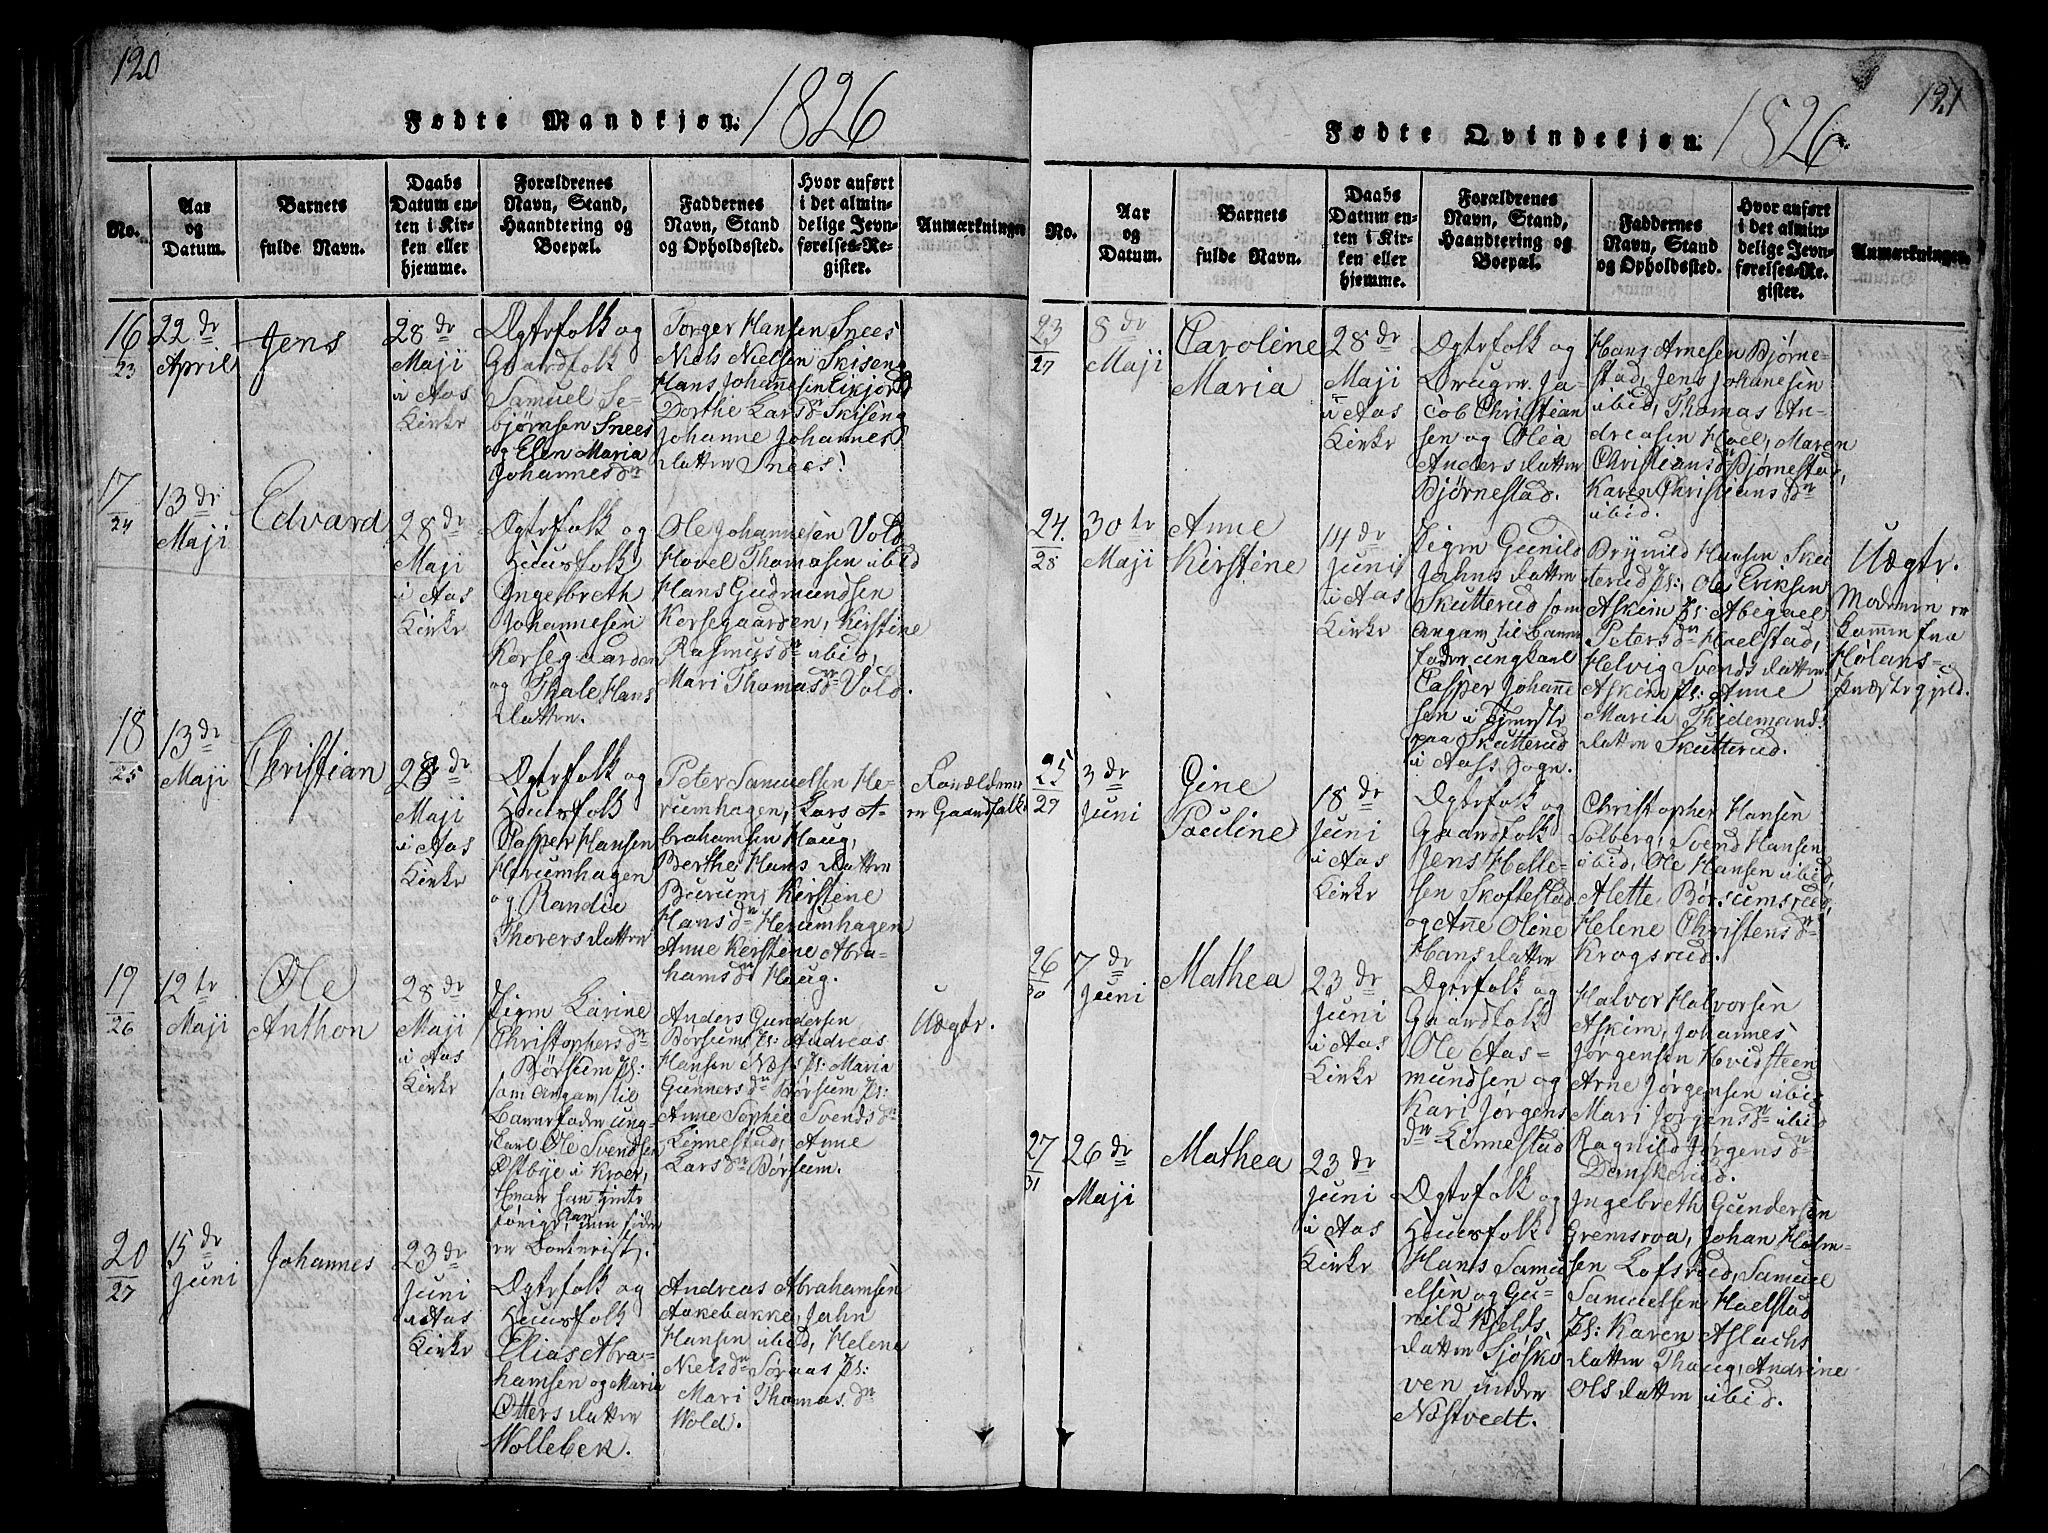 120
Fødte Mandkjøn. 1826
No.
Aar
og
Datum.
Barnets
fulde Navn.
Daabs
Datum en-
ten i Kir-
ken eller
hjemme.
Forældrenes
Navn, Stand,
Haandtering og
Boepæl.
Faddernes
Navn, Stand
og Opholdssted.
Hvor anført
i det almin-
delige Jevn-
førelses-Re-
gister.
Anmærkninger
16
23
22 de
April
Jens
28 de
Maji
i Aas
Kirke
Ægtefolk og
Gaardfolk
Samuel Se-
bjørnsen Snees
og Elen Maria
Johannesdr
Torger Hansen Snees
Niels Nielsen Skiseng
Hans Johannesen Eikjord
Dorthe Larsdr Skiseng
Johanne Johannes
datter Snees.
17
24
13 de
Maji
Edvard
28 de
Maji
i Aas
Kirke
Ægtefolk og
Huusfolk
Ingebreth
Johannesen
Korsegaarden
og Thale Hans
datter.
Ole Johannesen Vold
Hovel Thomasen ibid
Hans Gudmundsen
Korsegaarden, Kirstine
Rasmusdr ibid,
Mari Thomasdr Vold.
18
25
13 de
Maji
Christian
28 de
Maji
i Aas
Kirke
Ægtefolk og
Huusfolk
Casper Hansen
Herumhagen
og Randie
Thorersdatter
Peter Samuelsen He-
rumhagen, Lars A-
brahamsen Haug,
Berthe Hans datter
Burum, Kirstine
Hansdr Herumhagen
Anne Kirstine Abra-
hamsdr Haug.
Forældrene
er Gaardfolk
19
26
12 te
Maji
Ole
Anthon
28 de
Maji
i Aas
Kirke
Pigen Karine
Christophersdr
Børsum Pl:
som angav til
Barnefader ung-
karl Ole Svendsen
Østbye i Kroer,
hvor han tjente
forrige Aar, nu siden
er borterist.
Anders Gundersen
Børsum Pl: Andreas
Hansen Næs Pl: Maria
Gunnersdr Børsum Pl:
Anne Sophie Svendsdr
Kinnestad, Anne
Larsdr Børsum.
Uægte.
20
27
15 de
Juni
Johannes
23 de
Juni
i Aas
Kirke
Ægtefolk og
Huusfolk
Elias Abra-
hamsen og Maria
Ottersdatter
Wollebek.
Andreas Abrahamsen
Aakebakke, Jahn
Hansen ibid, Helene
Nielsdr Søraas Pl:
Mari Thomasdr
Wold.
121
Fødte Qvindekjøn. 1826.
No.
Aar
og
Datum.
Barnets
fulde Navn.
Daabs
Datum en-
ten i Kir-
ken eller
hjemme.
Forældrenes
Navn, Stand,
Haandtering og
Boepæl.
Faddernes
Navn, Stand
og Opholdssted.
Hvor anført
i det almin-
delige Jevn-
førelses-Re-
gister.
Anmærkninger.
23
27
8 de
Maji
Caroline
Maria
28 de
Maji
i Aas
Kirke
Ægtefolk og
Brugere Ja-
cob Christian
sen og Olea
Andersdatter
Bjørnestad.
Hans Arnesen Bjørne-
stad, Jens Johanesen
ibid, Thomas An-
dreasen Hoel, Maren
Christiansdr Bjørnestad,
Karen Christiansdr
ibid.
24.
28
30 te
Maji
Anne
Kirstine
14 de
Juni
i Aas
Kirke
Pigen Gunild
Jahnsdatter
Skutterud som
angav til Barne
fader ungkarl
Casper Johanne
sen i Tjeneste
paa Skutterud
i Aass Sogn.
Brynild Hansen Sku
terud Pl: Ole Eriksen
Askim Pl: Abegael
Petersdr Haelstad,
Helvig Svends datter
Askim Pl: Anne
Maria Thidemands
datter Skutterud.
Uægte.
Moderen er
kommen fra
Hølans
Præstegjeld.
25
29
3 de
Juni
Gine
Pauline
18 de
Juni
i Aas
Kirke
Ægtefolk og
Gaardfolk
Jens Helle-
sen Skoftestad
og Anne Oline
Hansdatter
Christopher Hansen
Solberg, Svend Hansen
ibid, Ole Hansen ibid,
Alette Børsumsrud,
Helene Christensdr
Krogsrud.
26
30
7 de
Juni
Mathea
23 de
Juni
i Aas
Kirke
Ægtefolk og
Gaardfolk
Ole Aas-
mundsen og
Kari Jørgens
dr Kinnestad
Halvor Halvorsen
Askim, Johannes
Jørgensen Hvidsteen
Arne Jørgensen ibid
Mari Jørgensdr ibid
Ragnild Jørgensdr
Danskerud.
27
31
26 de
Maji
Mathea
23 de
Juni
i Aas
Kirke
Ægtefolk og
Huusfolk
Hans Samu-
elsen og Gu-
nild Kjelds
datter Sjøsko
ven under
Nøstvedt.
Ingebreth Gundersen
Gremsroa, Johan Holm-
sen Lofsrud, Samuel
Samuelsen Haelstad
Pl: Karen Aslachs
datter Thaug, Andrine
Olsdatter ibid.